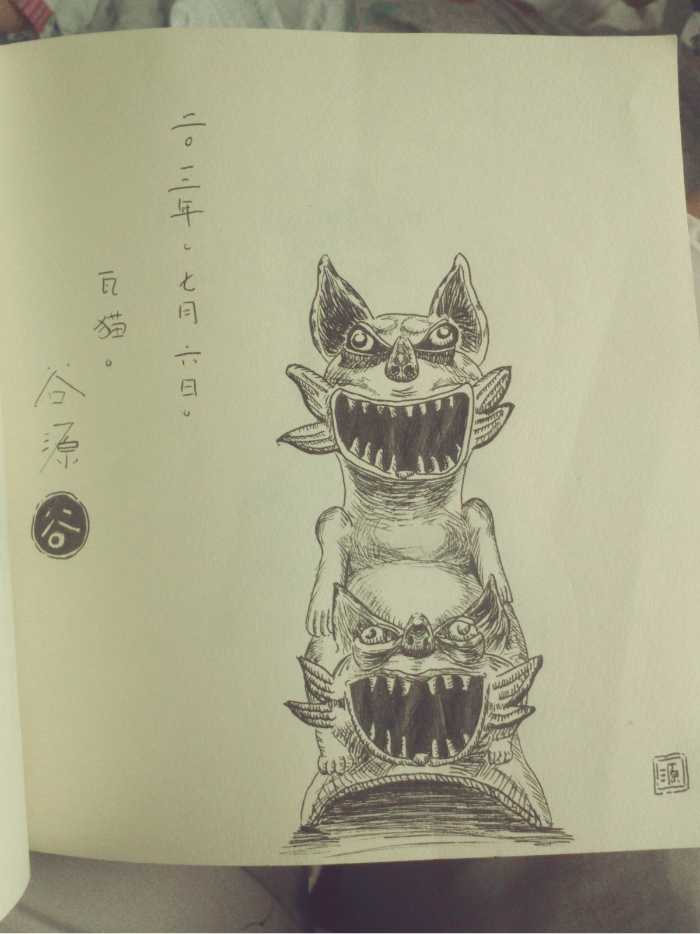 二〇一三年。七月六日。
瓦猫。
谷源
谷
源